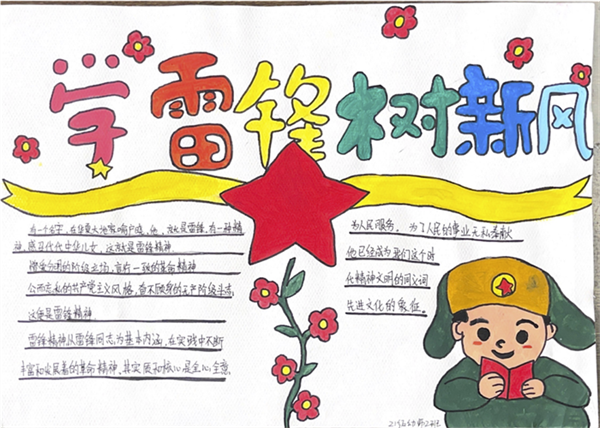 学雷锋树新风
有一个名字，在华夏大地家喻户晓，他，就是雷锋，有一种精
神，感召代代中华儿女，这就是雷锋精神
憎爱分明的阶级立场，言行一致的革命精神
公而忘私的共产主义风格，奋不顾身的无产阶级斗志，
这便是雷锋精神
雷锋精神从雷锋同志为基本内涵，在实践中不断
丰富和发展着的革命精神，其实质和核心是全心全意
为人民服务，为了人民的事业无私奉献
他已经成为我们这个时
代精神文明的同义词
先进文化的象征。